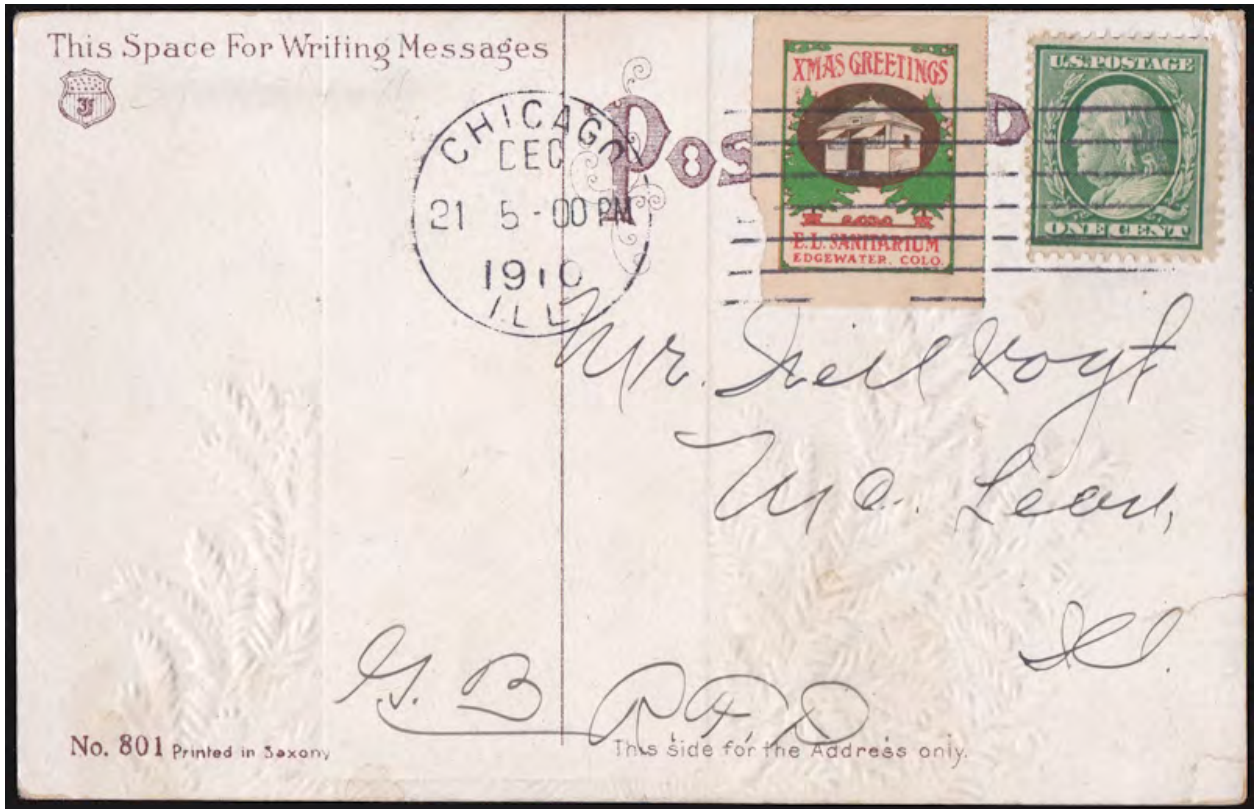 This Space For Writing Messages
CHICAGO
DEC
21 5-00 PM
1910
ILL.
POS D
XMAS GREETINGS
E.L. SANITARIUM
EDGEWATER, COLO.
U.S. POSTAGE
ONE CENT
Mr. Nell Hoyt
Mc. Lean,
Ill.
G. B R.F.D
No. 801 Printed in Saxony
This side for the Address only.